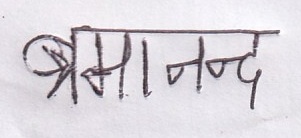 श्रमानन्द